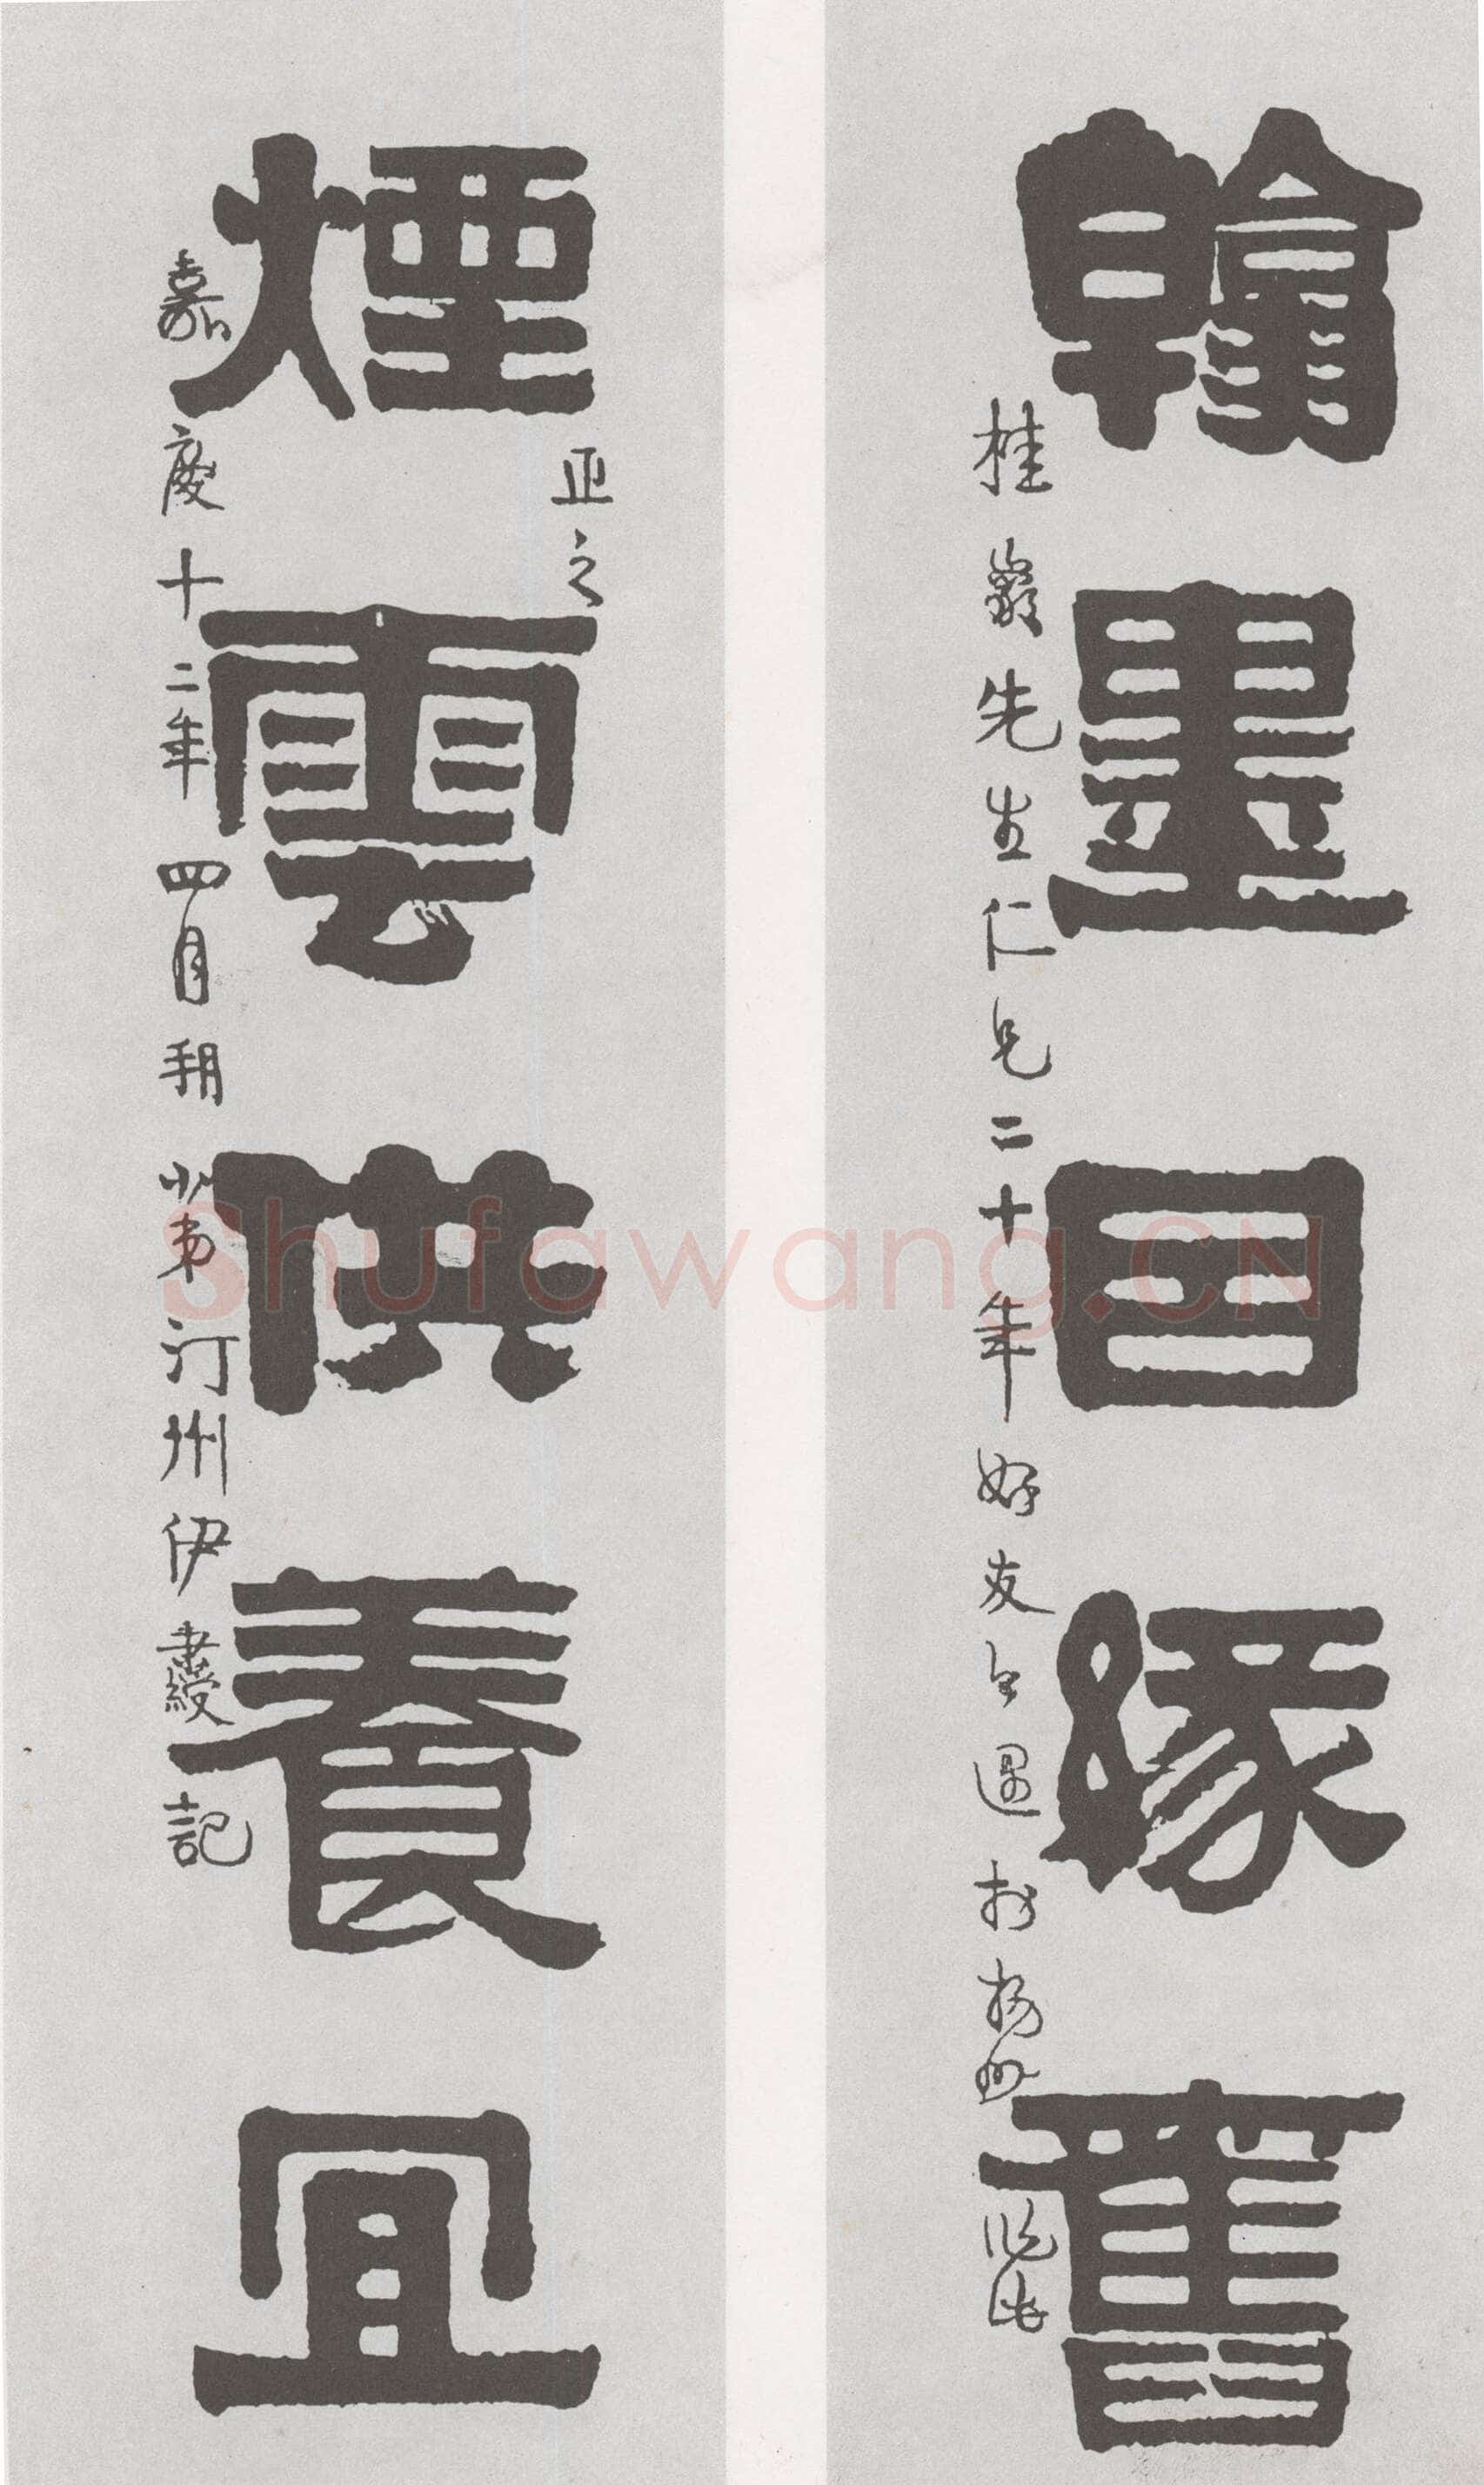 翰墨因緣舊
桂巖先生仁兄二十年好友今遇於揚州
正之
煙雲供養宜
嘉慶十二年四月朔小弟汀州伊秉綬記
Shufawang.CN